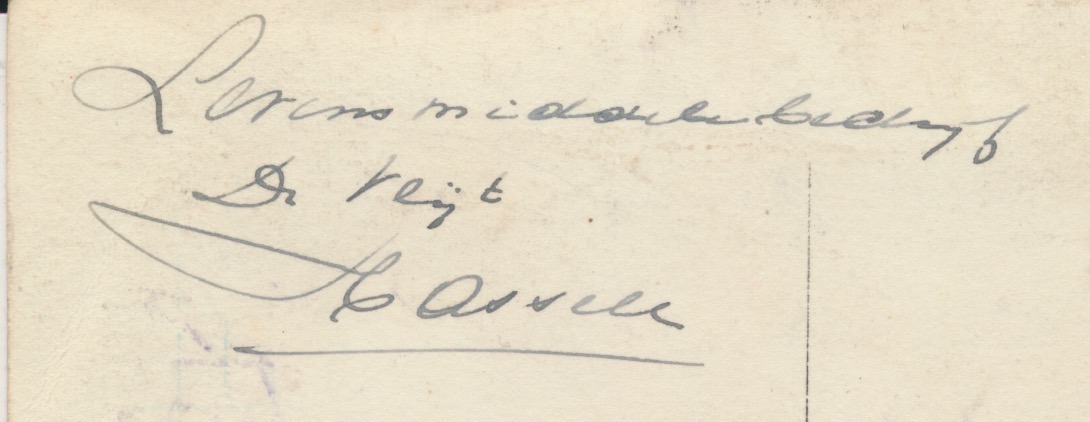 Levensmiddelenbedrijf
De Vlijt
Hasselt